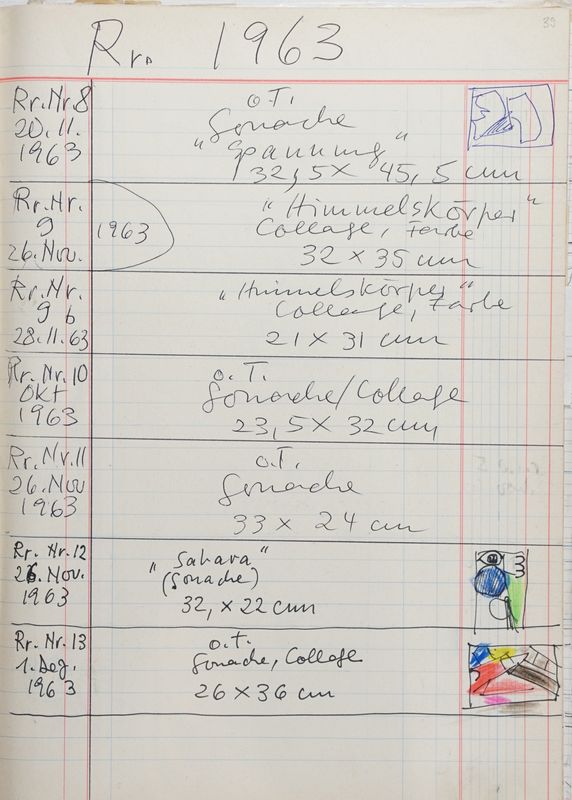 39
Rr. 1963
Rr. Nr. 8
20.11.
1963
o.T.
Gouache
"Spannung"
32,5 x 45,5 cm
Rr. Nr.
9
26. Nov.
1963
"Himmelskörper"
Collage, Farbe
32 x 35 cm
Rr. Nr.
9 b
28.11.63
"Himmelskörper"
Collage, Farbe
21 x 31 cm
Rr. Nr. 10
Okt
1963
o.T.
Gouache/Collage
23,5 x 32 cm
Rr. Nr. 11
26. Nov
1963
o.T.
Gouache
33 x 24 cm
Rr. Nr. 12
26. Nov.
1963
"Sahara"
(Gouache)
32, x 22 cm
Rr. Nr. 13
1. Dez.
1963
o.T.
Gouache, Collage
26 x 36 cm